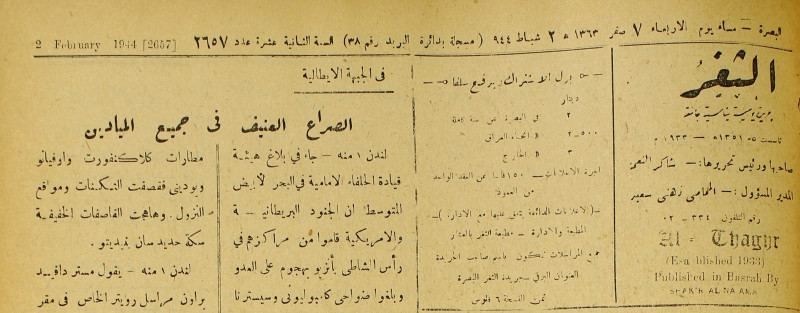 البصرة — مساء يوم الاربعاء ٧ صفر ١٣٦٣ ه ٢ شباط ٩٤٤ ( مسجلة بدائرة البريد رقم ٣٨ ) السنة الثانية عشرة عدد ٢٦٥٧ 2 February 1944 [2657]
الثغر
يومية سياسية جامعة
تأسست ١٣٥١ه — ١٩٣٣ م
صاحبها ورئيس تحريرها: — شاكر النعمة
المدير المسؤول: — المحامي زهني سعيد
رقم التلفون ٣٣٤ — ٢٠
Al - Thaghr
(Established 1933)
Published in Basrah By
SHAKIR AL NAAMA
بدل الاشتراك ويدفع سلفا
دينار
٢ في البصرة عن سنة كاملة
٢—٥٠٠ » انحاء العراق
٣ » الخارج
اجرة الاعلانات — ١٥٠ فلسا عن العقد الواحد
من العمود
—( الاعلانات الدائمة يتفق عليها مع الادارة )—
المطبعة والادارة — مطبعة الثغر بالعشار
جميع المراسلات تكون باسم صاحب الجريدة
العنوان البرقي — جريدة الثغر البصرة
ثمن النسخة ٦ فلوس
في الجبهة الايطالية
الصراع العنيف في جميع الميادين
لندن ١ منه — جاء في بلاغ هيئة
قيادة الحلفاء الامامية في البحر الأبيض
المتوسط ان الجنود البريطانية
والامريكية قاموا من مراكزهم في
رأس الشاطي بأنزيو بهجوم على العدو
وبلغوا ضواحي كامبوليوني وسيسترنا
مطارات كلاكنفورت وافيانو
وبوديني فقصفت التمكينات ومواقع
النزول. وهاجمت القاصفات الخفيفة
سكة حديد سان بنيديتو.
لندن ١ منه — يقول مستر دافيد
براون مراسل رويتر الخاص في مقر